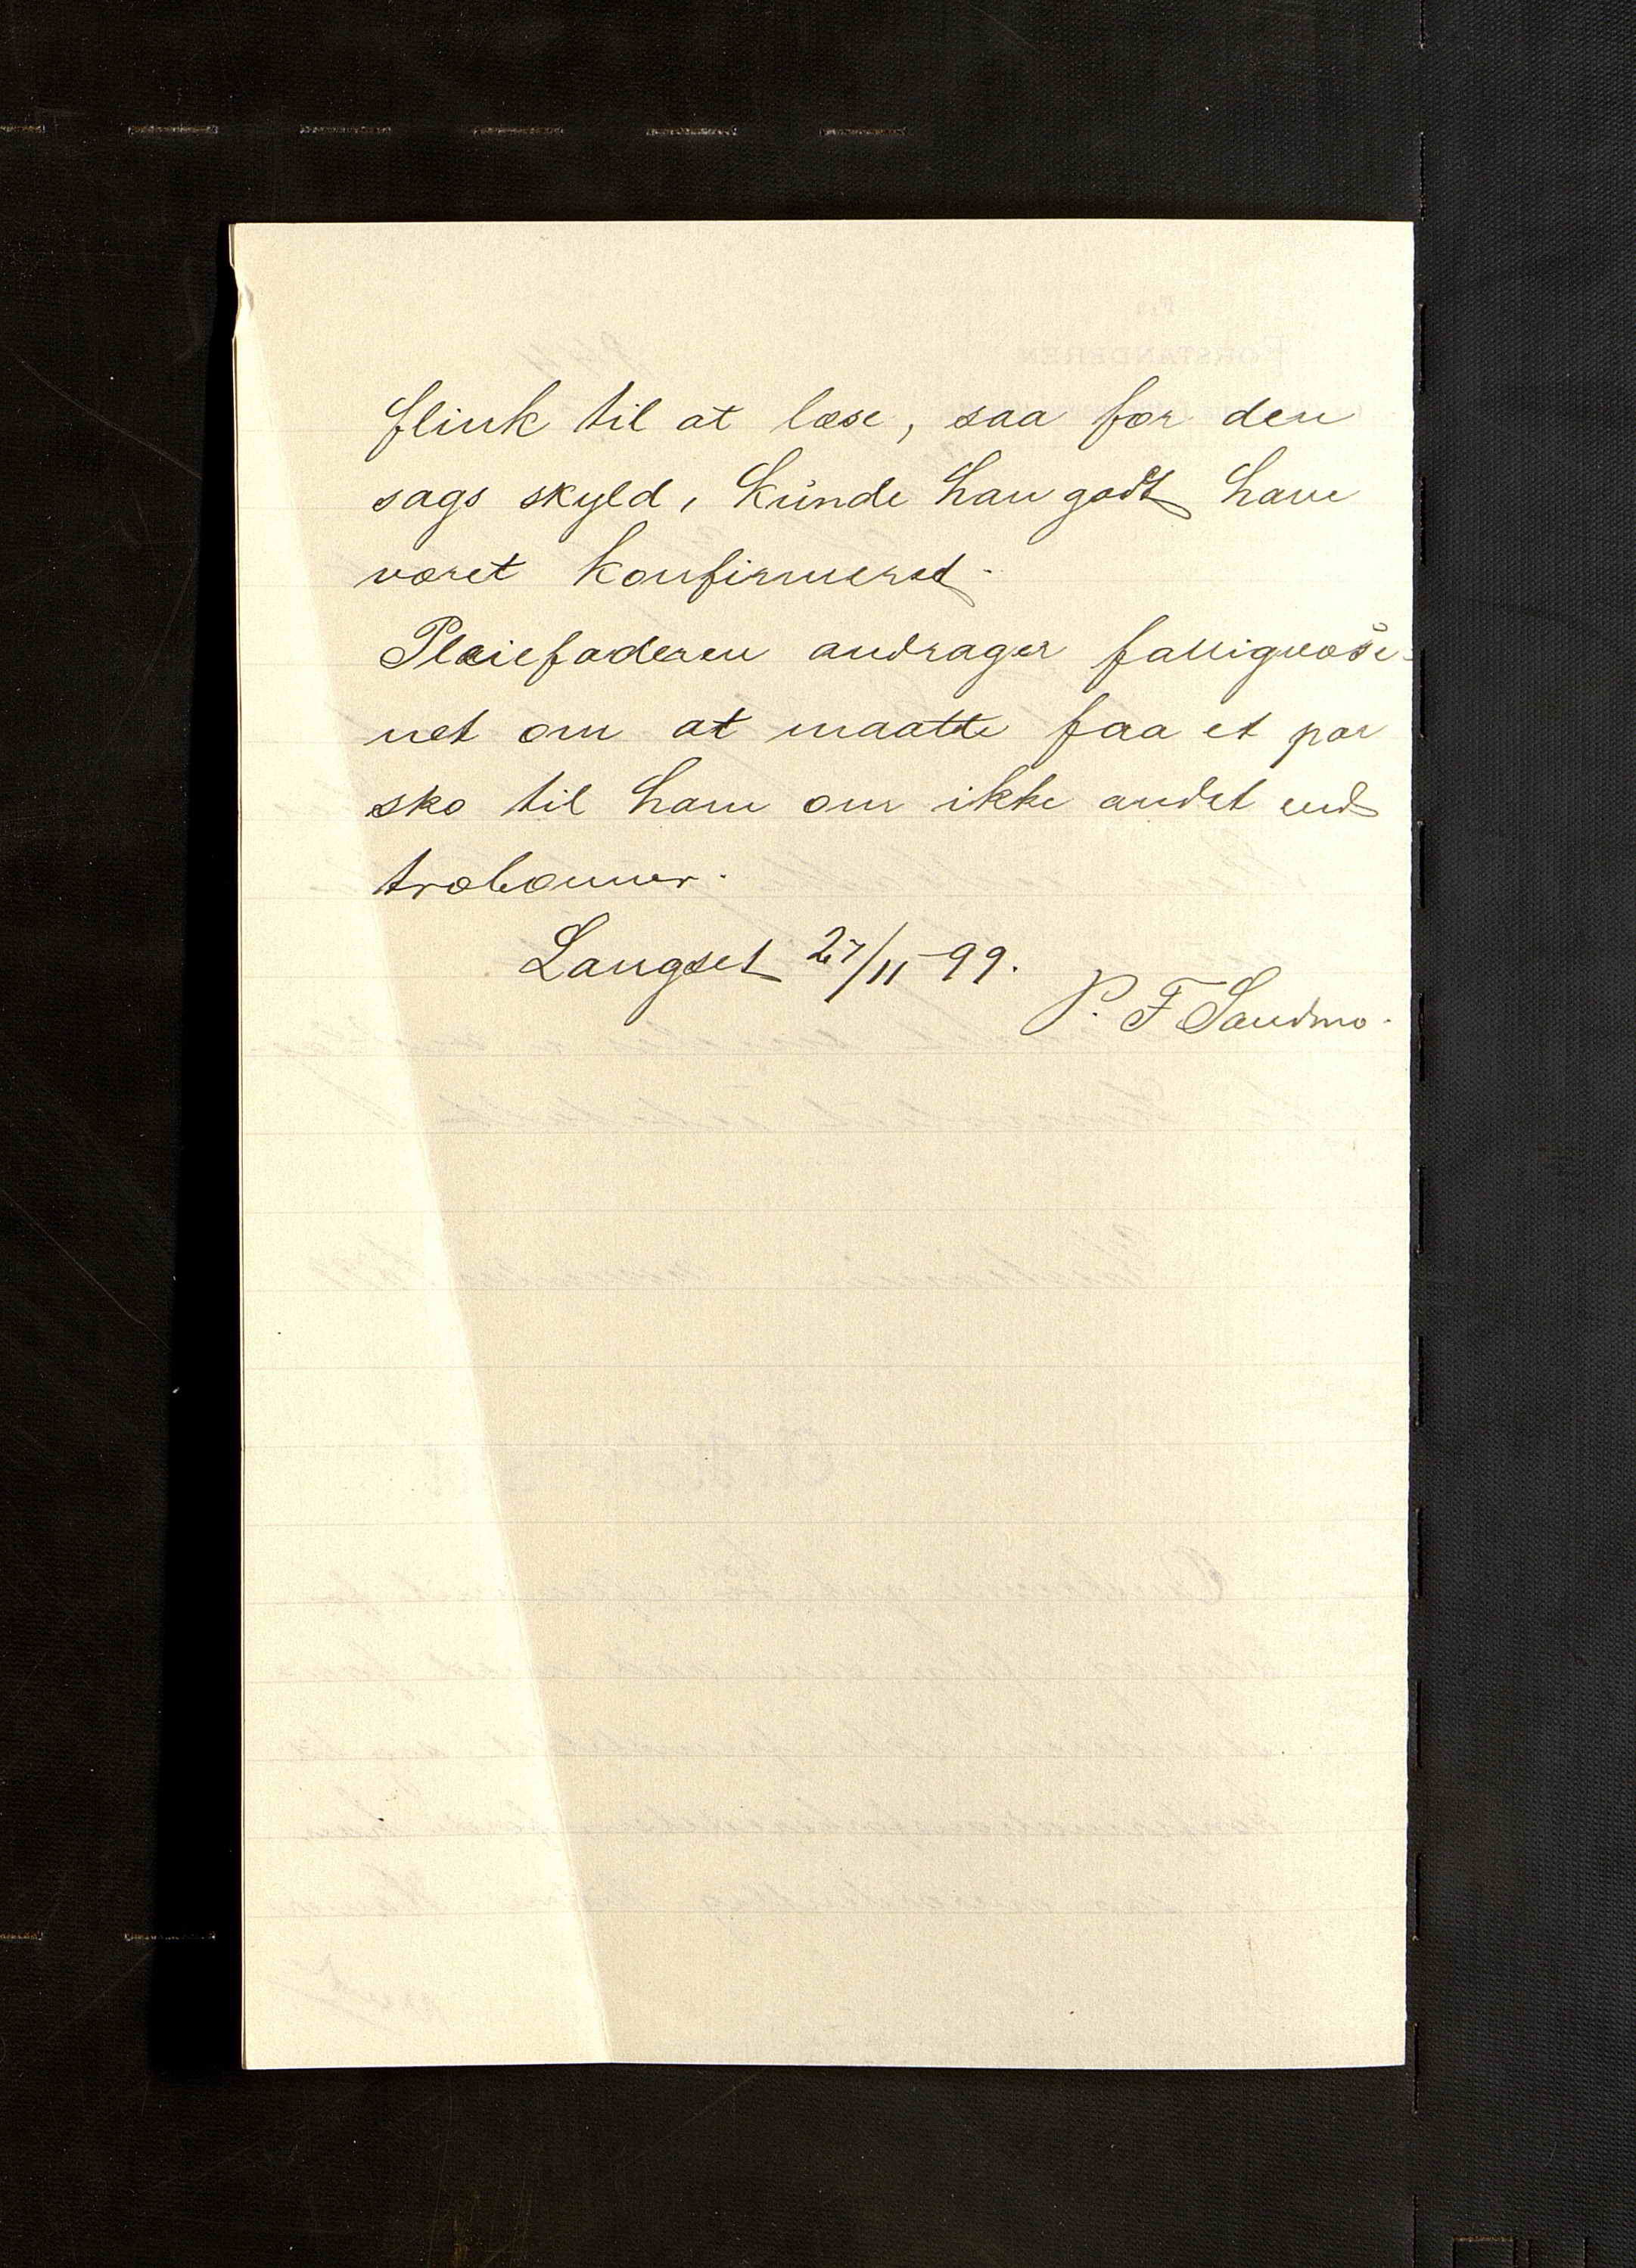 flink til at læse, saa for den
sags skyld, kunde han godt have
været konfirmeret.
Pleiefaderen andrager fattigvæse-
net om at maatte faa et par
sko til ham om ikke andet end
træbonner.
Langset 27/11-99.
P. F Sandmo.